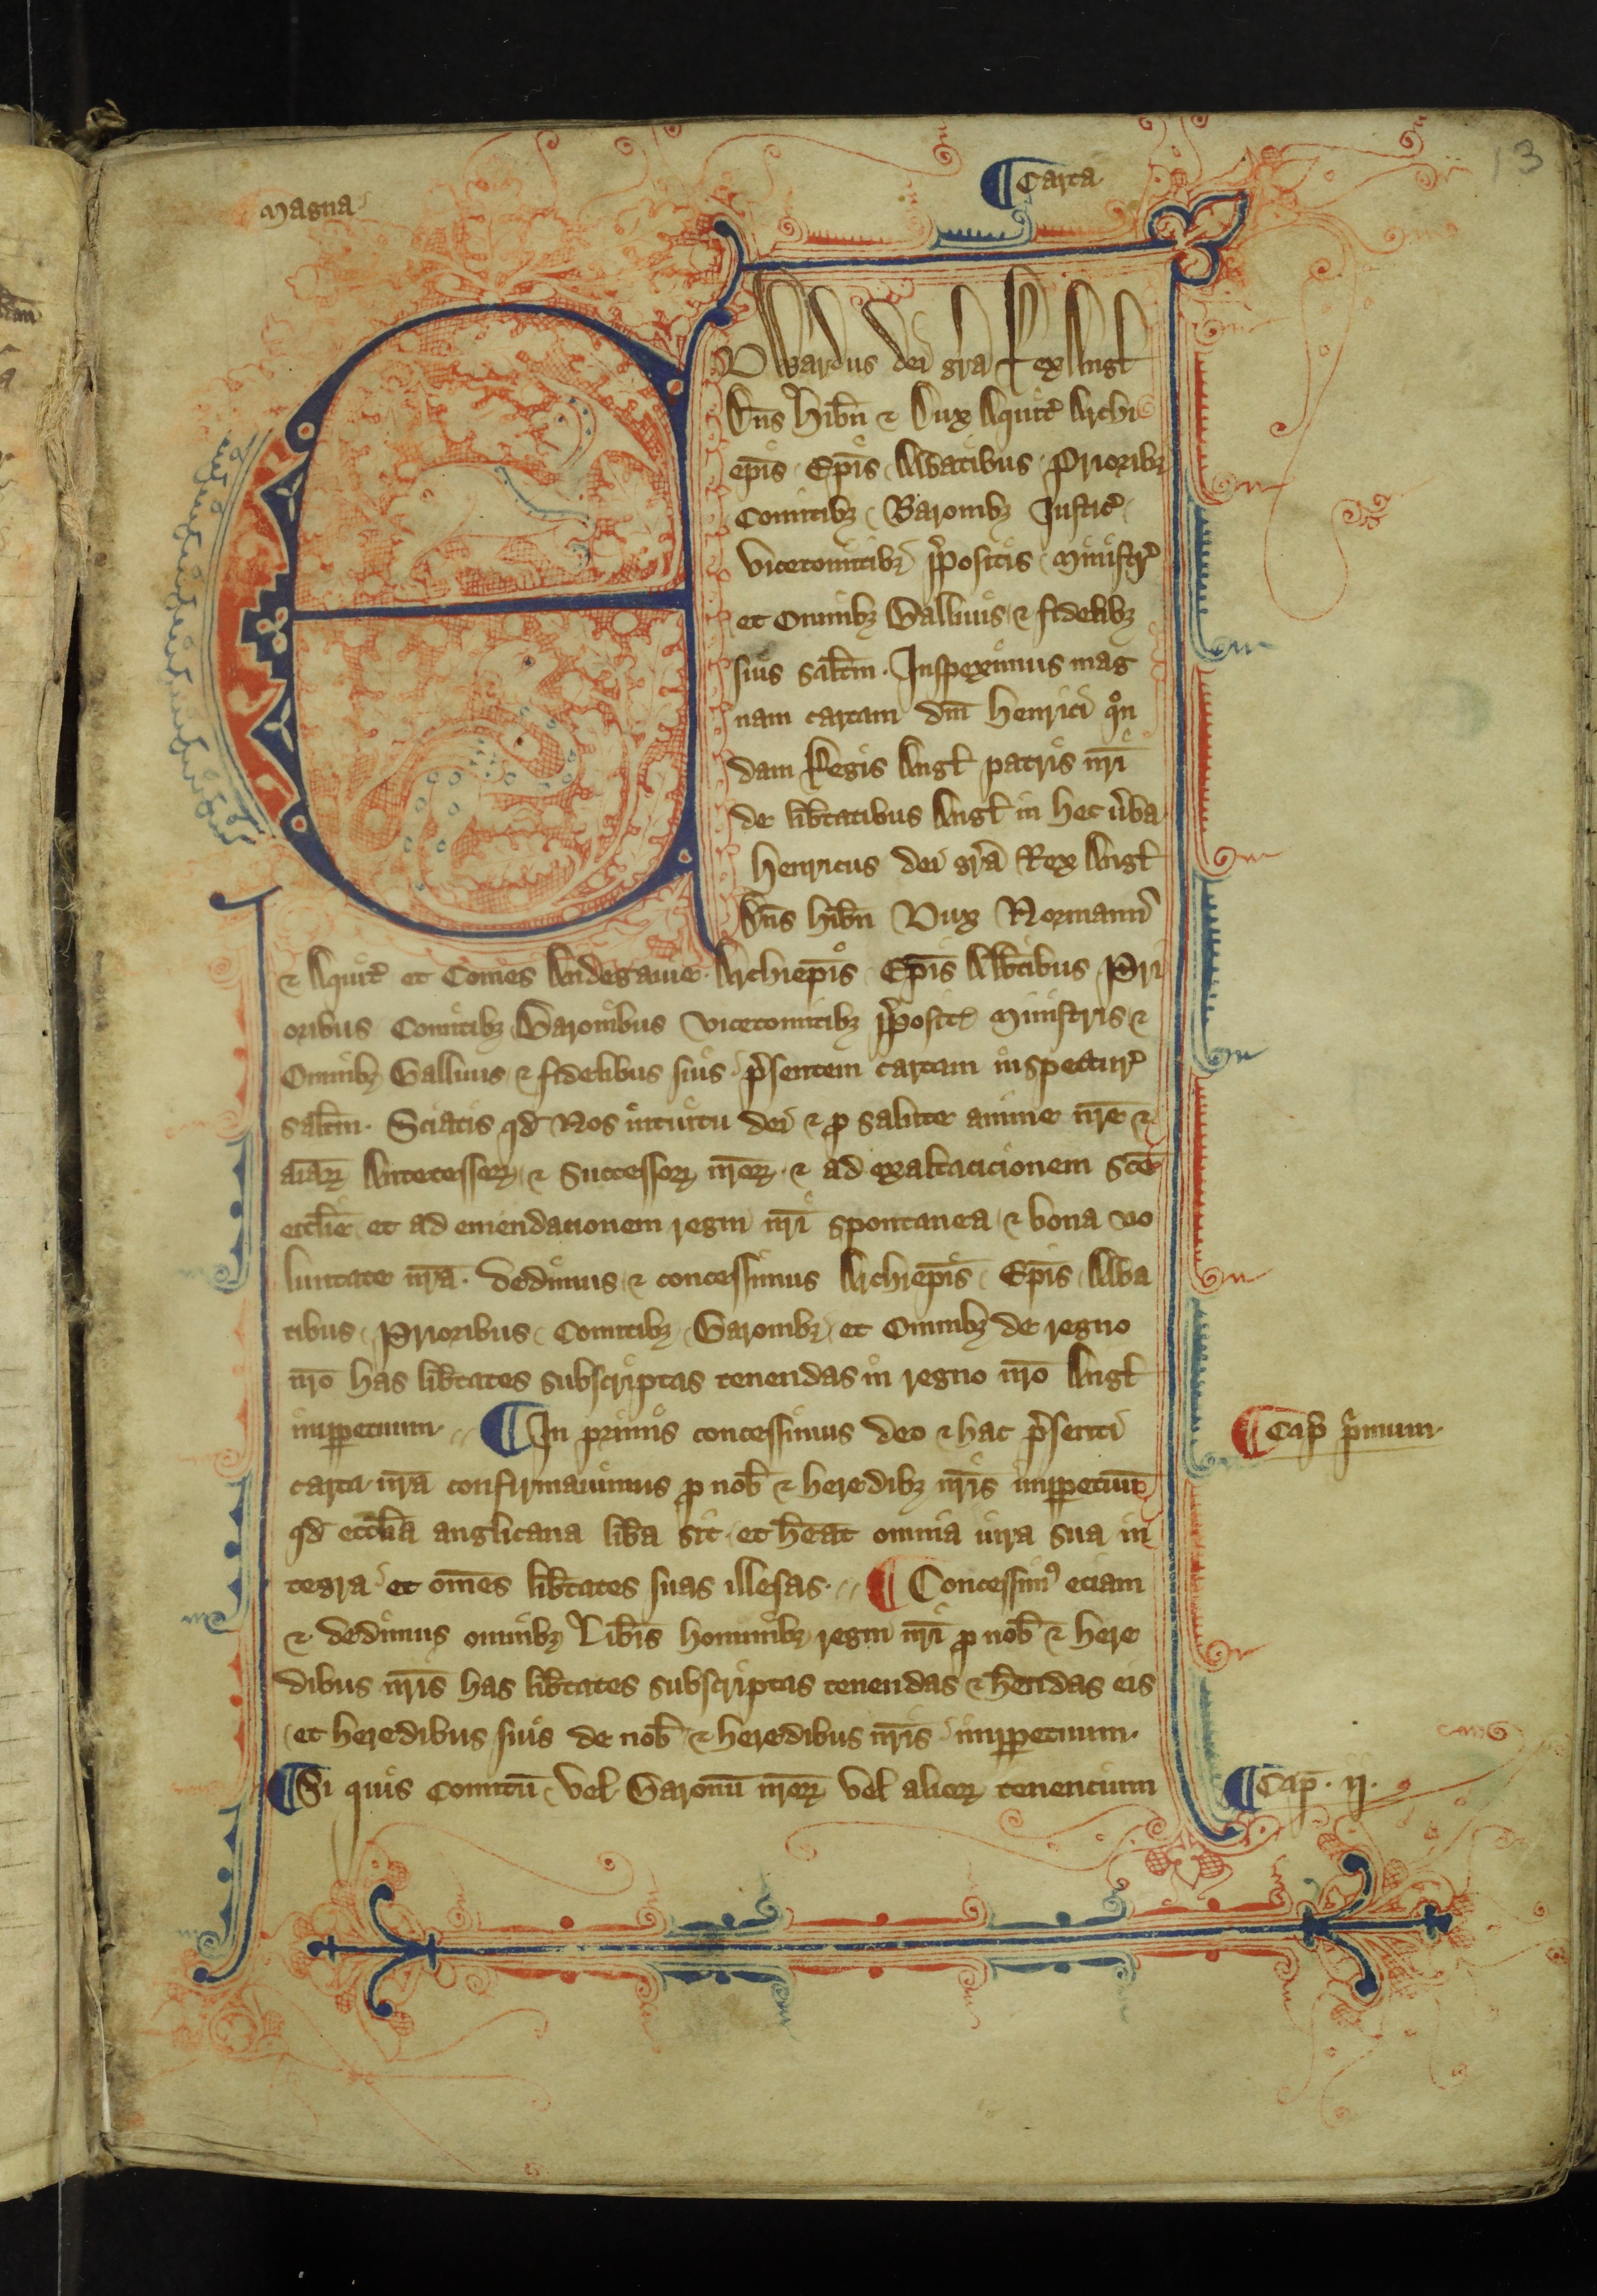 13
Magna
¶ Carta
EDwardus dei gr̄a Rex Angƚ
Dn̄s Hib̄n ⁊ Dux Aquit̉ Archi
ep̄is Ep̄is Abbatibus Prioribꝫ
Comitibꝫ Baronibꝫ Justic̉
vicecomitibꝫ p̄positis Ministr̉
et Omnibꝫ Ballivis ⁊ fidelibꝫ
suis salt̄m. Inspeximus mag
nam cartam dn̄i Henrici qͦn
dam Regis Angƚ patris nr̄i
de lib̄tatibus Angƚ in hec v̉ba
Henricus dei gr̄a Rex Angƚ
Dn̄s hib̄n Dux Normann̉
⁊ Aquit̉ et Comes Andegavie. Archiep̄is Ep̄is Abb̄tibus Pri
oribus Comitibꝫ Baronibus vicecomitibꝫ p̄posit̉ Ministris ⁊
Omnibꝫ Ballivis ⁊ fidelibus suis p̄sentem cartam inspectur̉
salt̄m. Sciatis qd̄ Nos intuitu dei ⁊ ꝓ salute anime nr̄e ⁊
aīaꝝ Antecessoꝝ ⁊ Successoꝝ nr̄oꝝ ⁊ ad exaltacicionem sc̄e
eccl̄ie et ad emendacionem regni nr̄i spontanea ⁊ bona vo
luntate nr̄a. dedimus ⁊ concessimus Archiep̄is Ep̄is Abba
tibus Prioribus Comitibꝫ Baronibꝫ et Omnibꝫ de regno
nr̄o has lib̄tates subscriptas tenendas in regno nr̄o Angƚ
imꝑpetuum. ¶ In primis concessimus deo ⁊ hac p̄senti
carta nr̄a confirmavimus ꝓ nob̄ ⁊ heredibꝫ nr̄is imꝑpetuum
qd̄ eccl̄ia anglicana lib̄a sit et h̄eat omnia iura sua in
tegra et om̄es lib̄tates suas illesas. ¶ Concessimꝰ eciam
⁊ dedimus omnibꝫ Lib̄is hominibꝫ regni nr̄i ꝓ nob̄ ⁊ here
dibus nr̄is has lib̄tates subscriptas tenendas ⁊ h̄endas eis
et heredibus suis de nob̄ ⁊ heredibus nr̄is imꝑpetuum.
¶ Si quis Comitū vel Baronū nr̄oꝝ vel alioꝝ tenencium
¶ Cap̄ p̄mum.
¶ Cap̄. ij.